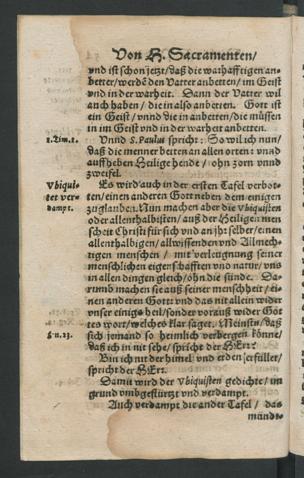 Von H. Sacramenten/
vnd ist schon jetzt/ daß die warhafftigen an-
better/ werdē den Vatter anbetten/ im Geist
vnd in der warheit. Dann der Vatter wil
auch haben/ die in also anbetten. Gott ist
ein Geist/ vnnd die in anbetten/ die müssen
in im Geist vnd in der warheit anbetten.
1. Tim. 2.
Vnnd S. Paulus spricht: So wil ich nun/
daß die menner betten an allen orten: vnnd
auffheben Heilige hende/ ohn zorn vnnd
zweifel.
Vbiqui-
ster ver-
dampt.
Es wird auch in der ersten Tafel verbot-
ten/ einen anderen Gott neben dem einigen
zuglauben. Nun machen aber die Vbiquisten
oder allenthalbisten/ auß der Heiligen men
scheit Christi für sich vnd an ihr selber/ einen
allenthalbigen/ allwissenden vnd Allmech-
tigen menschen/ mit verleugnung seiner
menschlichen eigenschafften vnd natur/ vns
in allen dingen gleich/ ohn die sünde. Da-
rumb machen sie auß seiner menschheit/ ei-
nen anderen Gott: vnd das nit allein wider
vnser einigs heil/ sonder vorauß wider Got
tes wort/ welches klar saget. Meinstu/ daß
sich jemand so heimlich verbergen könne/
daß ich in nit sehe/ spricht der HErr?
Bin ich nit der himel vnd erden erfüllet/
spricht der HErr.
Damit wird der Vbiquisten gedichte/ im
grund vmbgestürtzt vnd verdampt.
Auch verdampt die ander Tafel/ das
mündt-